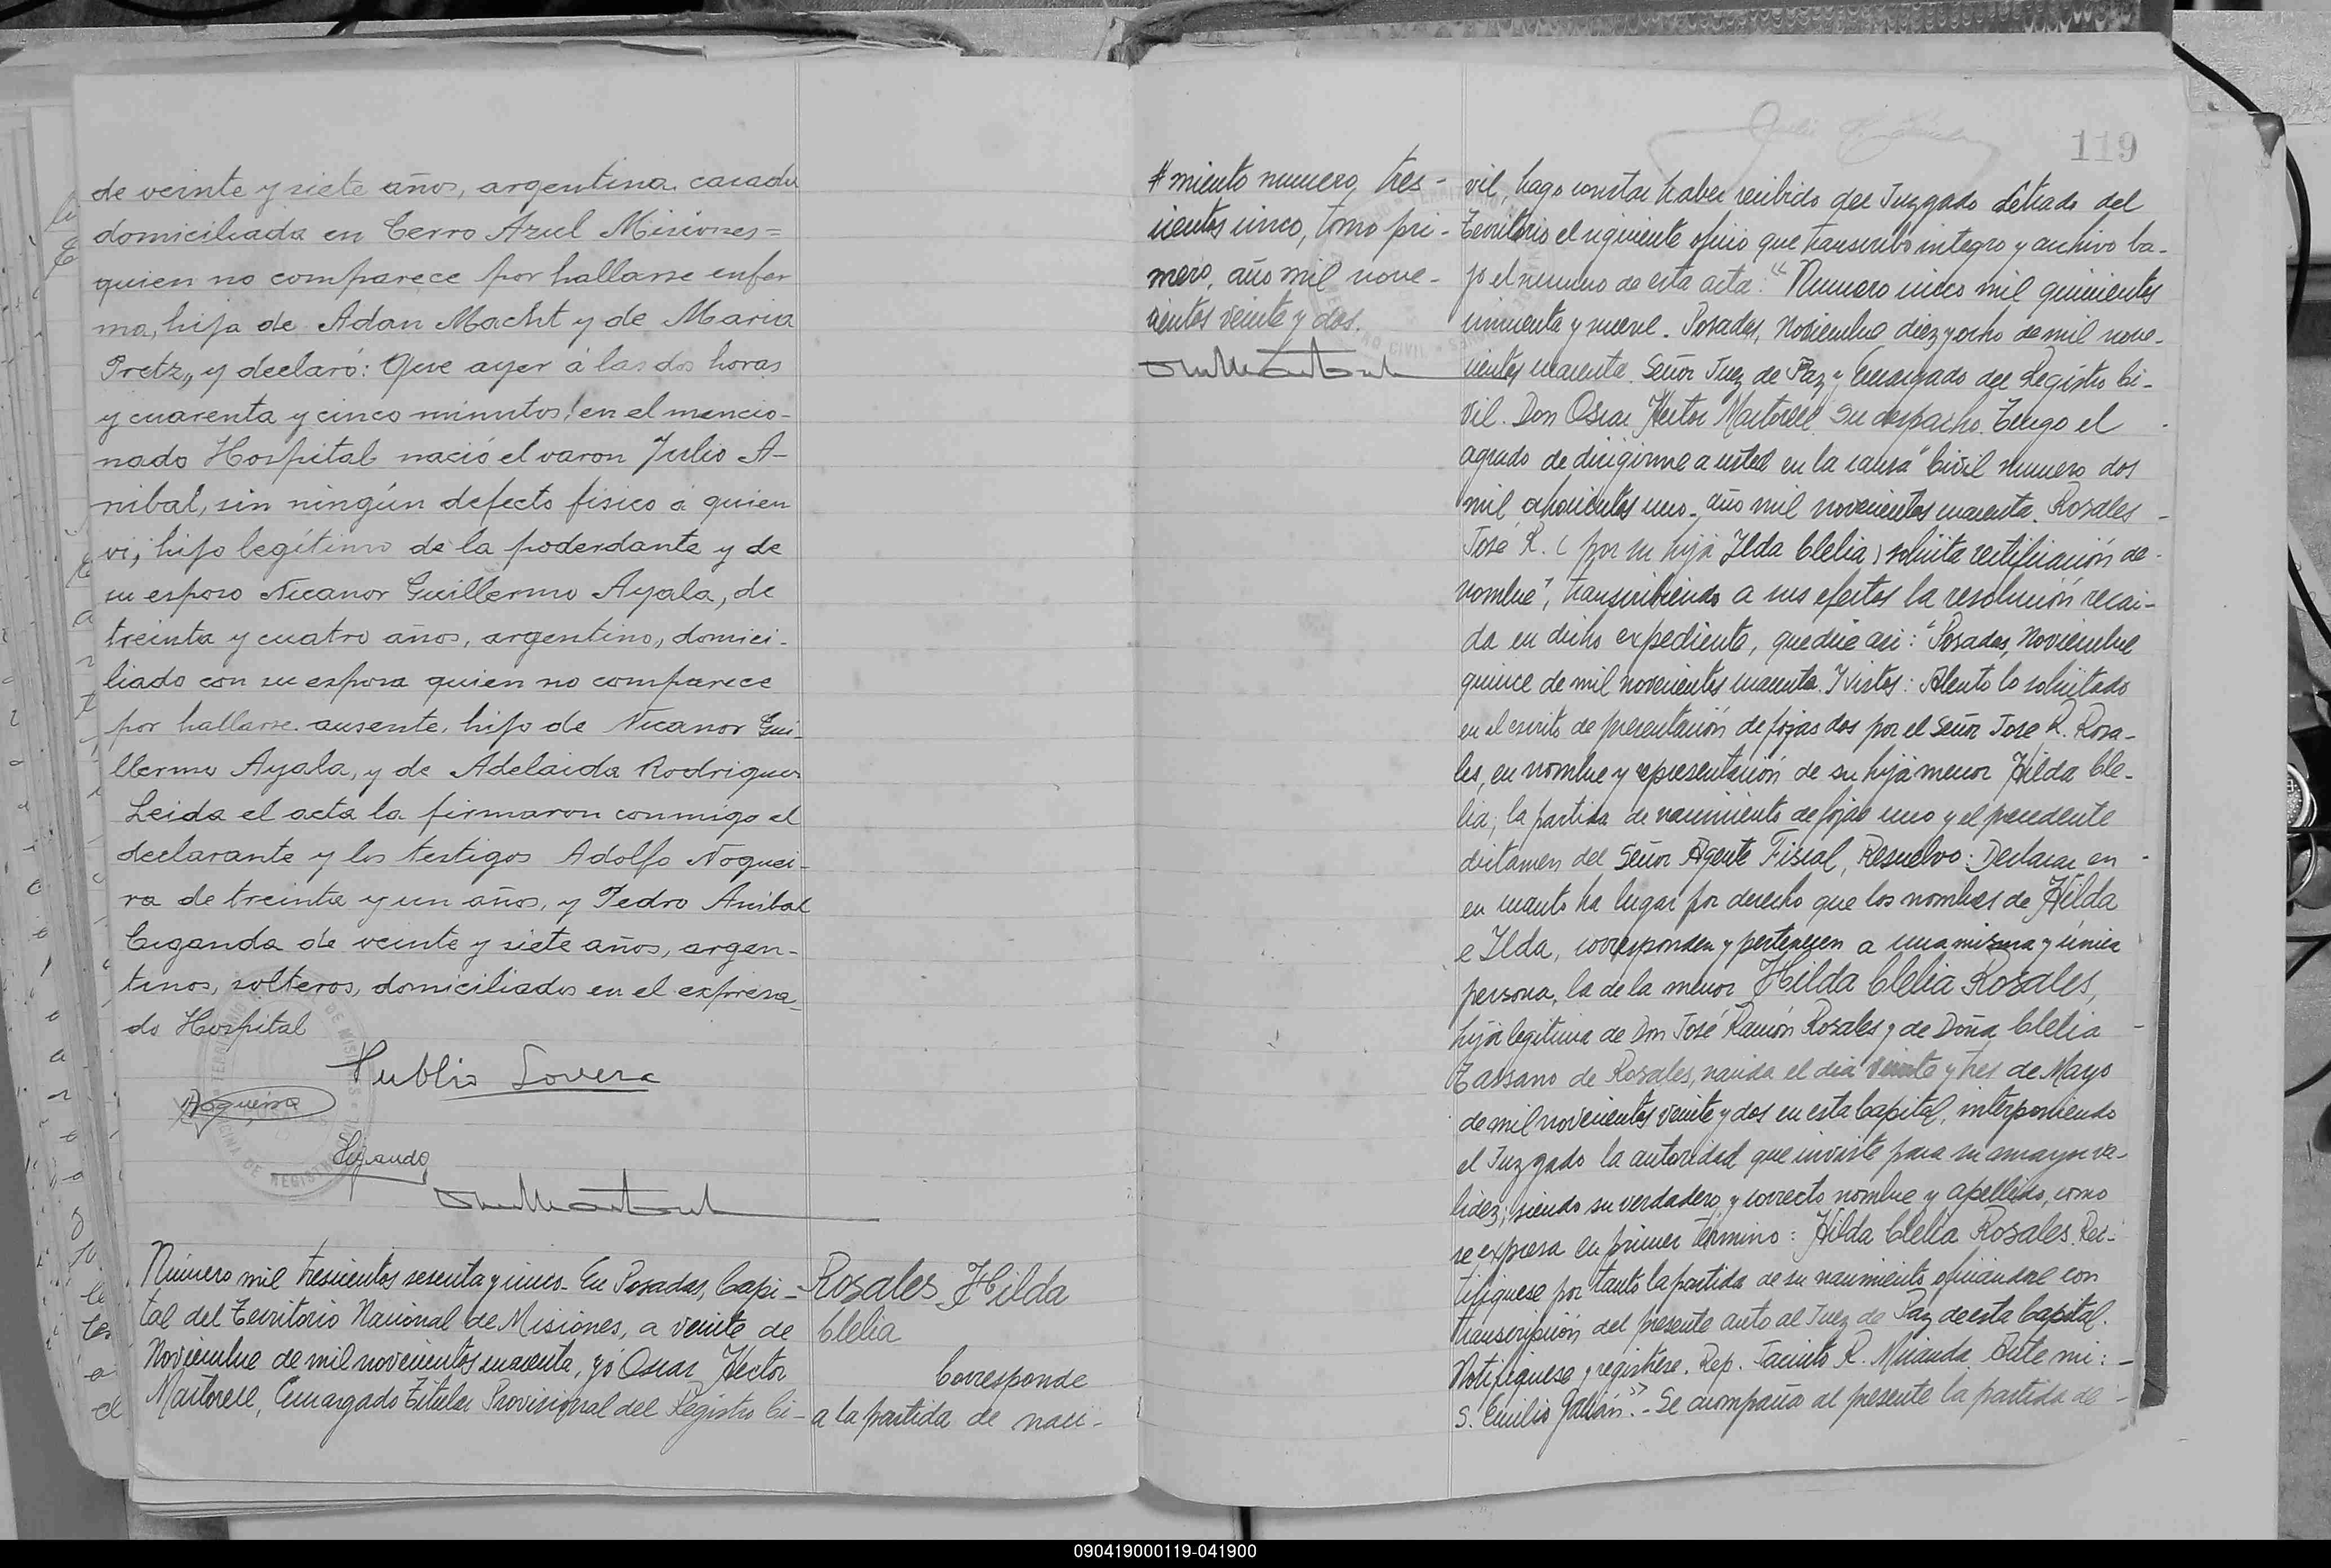 de veinte y siete años, argentina, casada
domiciliada en Cerro Azul Misiones=
quien no comparece por hallarse enfer
ma, hija de Adan Macht y de Maria
Pretz,, y declaró: Que ayer á las dos horas
y cuarenta y cinco minutos, en el mencio-
nado Hospital nació el varon Julio A-
nibal, sin ningún defecto fisico á quien
vi, hijo legítimo de la poderdante y de
su esposo Nicanor Guillermo Ayala, de
treinta y cuatro años, argentino, domici-
liado con su esposa quien no comparece
por hallarse ausente, hijo de Nicanor Gui-
llermo Ayala, y de Adelaida Rodrigues
Leida el acta la firmaron conmigo el
declarante y los testigos Adolfo Noguei-
ra de treinta y un años, y Pedro Anibal
Ciganda de veinte y siete años, argen-
tinos, solteros, domiciliados en el expresa-
do Hospital
Publio Lovera
Nogueira
Número mil trescientos sesenta y cinco- En Posadas, Capi-
tal del Territorio Nacional de Misiones, a veinte de
Noviembre de mil novecientos cuarenta, yó Oscar Hector
Martorell, Encargado Titular Provisional del Registro Ci-
Rosales Hilda
Clelia
Corresponde
a la partida de naci-
119
# miento numero, tres-
cientos cinco, tomo pri-
mero, año mil nove-
cientos veinte y dos.
vil, hago constar haber recibido del Juzgado Letrado del
Territorio el siguiente oficio que transcribo integro y archivo ba-
jo el numero de esta acta: "Numero cinco mil quinientos
cincuenta y nueve. Posadas, Noviembre diez y ocho de mil nove-
cientos cuarenta. Señor Juez de Paz y Encargado del Registro Ci-
vil. Don Oscar Hector Martorell su despacho. Tengo el
agrado de dirigirme a usted en la causa "Civil numero dos
mil ochocientos uno- año mil novecientos cuarenta. Rosales
José R. (por su hija Ilda Clelia) solicita rectificación de-
nombre", transcribiendo a sus efectos la resolución recai-
da en dicho expediente, que dice asi: "Posadas, Noviembre
quince de mil novecientos cuarenta. Y vistos: Atento lo solicitado
en el escrito de presentación de fojas dos por el Señor Jose R. Rosa-
les, en nombre y representación de su hija menor Hilda Cle-
lia, la partida de nacimiento de fojas uno y el precedente
dictamen del Señor Agente Fiscal, Resuelvo: Declarar en
en cuanto ha lugar por derecho que los nombres de Hilda
e Ilda, corresponden y pertenecen a una misma y única
persona, la de la menor Hilda Clelia Rosales,
hija legitima de Don José Ramón Rosales y de Doña Clelia
Tassano de Rosales, nacida el día veinte y tres de Mayo
de mil novecientos veinte y dos en esta Capital, interponiendo
el Juzgado la autoridad que inviste para su amayor va-
lidez; siendo su verdadero y correcto nombre y apellido, como
se expresa en primer término: Hilda Clelia Rosales. Rec-
tifiquese por tanto la partida de su nacimiento oficiandose con
transcripción del presente auto al Juez de Paz de esta Capital.
Notifiquese y registrese. Rep. Jacinto R. Miranda. Ante mi:-
S. Emilio Galián."- Se acompaña al presente la partida de
090419000119-041900